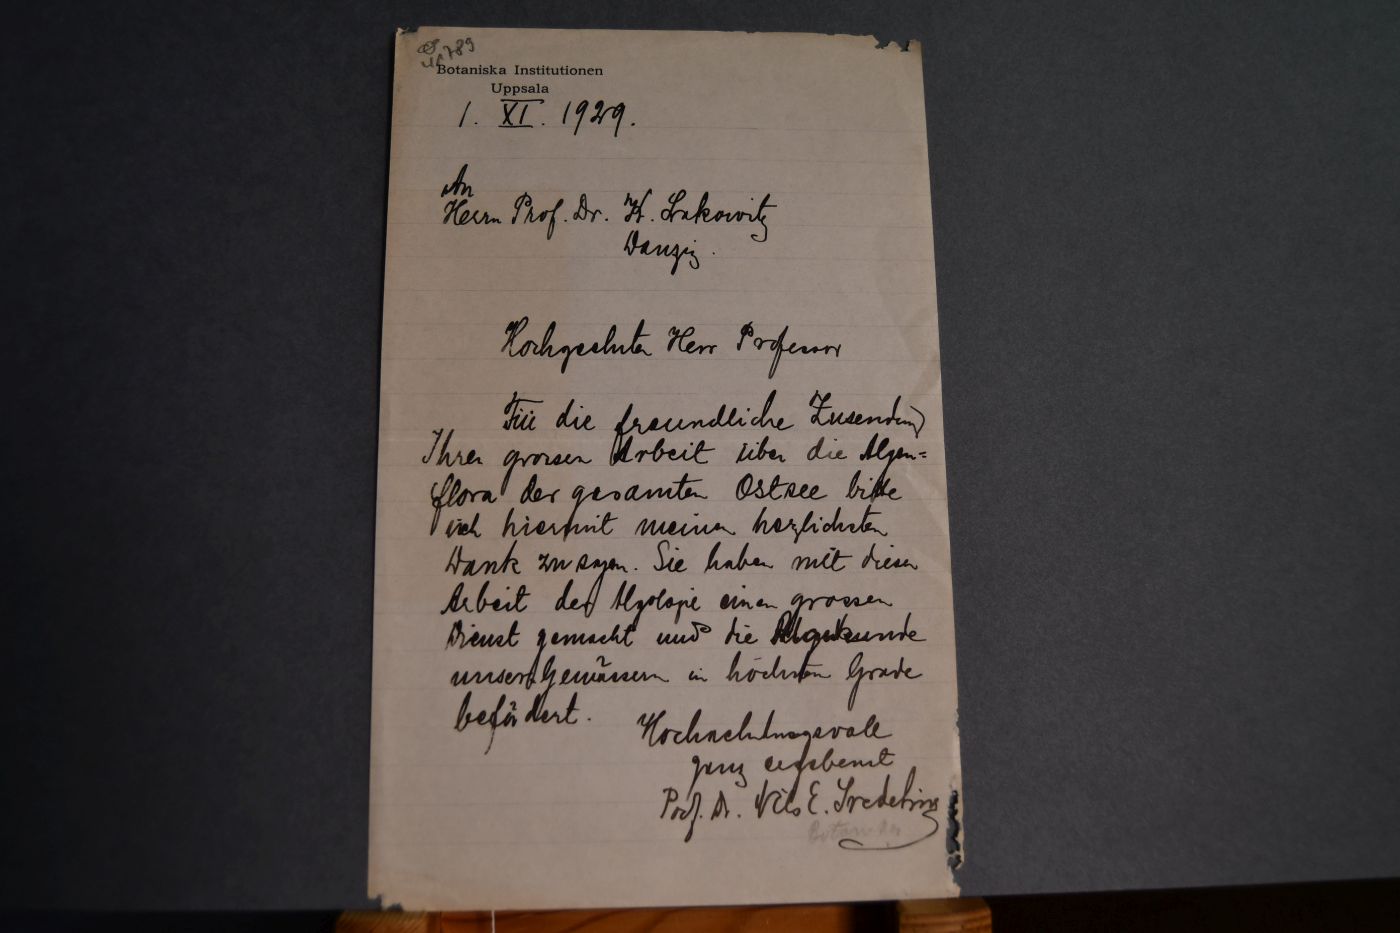 789
Botaniska Institutionen
Uppsala
1. XI. 1929.
An
Herrn Prof. Dr. Lakowitz
Danzig.
Hochgeehrter Herr Professor
Für die freundliche Zusendung
Ihrer grossen Arbeit über die Algen=
flora der gesamten Ostsee bitte
ich hiermit meinen herzlichsten
Dank zu sagen. Sie haben mit dieser
Arbeit der Algologie einen grossen
Dienst gemacht und die Algenkunde
unserer Gewässern in höchsten Grade
befördert.
Hochachtungsvoll
ganz ergebenst
Prof. Dr. Nils E. Svedelius
Botaniker